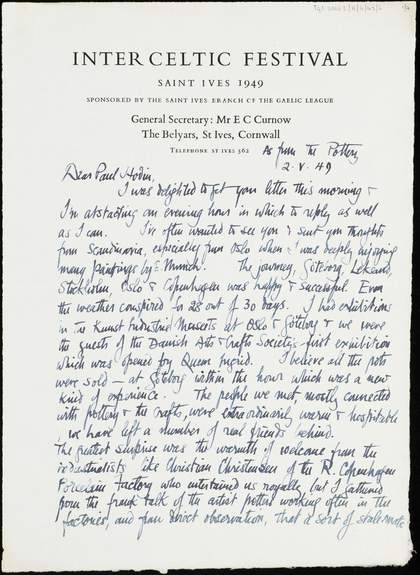 INTER CELTIC FESTIVAL
SAINT IVES 1949
SPONSORED BY THE SAINT IVES BRANCH OF THE GAELIC LEAGUE
General Secretary: Mr E C Curnow
The Belyars, St Ives, Cornwall
TELEPHONE ST IVES 562
As from the Pottery
2. V. 49
Dear Paul Hodin,
I was delighted to get your letter this morning &
I'm abstracting an evening hour in which to reply as well
as I can. I've often wanted to see you & sent you thoughts
from Scandinavia, especially from Oslo when I was deeply enjoying
many paintings by E. Munch. The journey, Göteborg,
Stockholm, Oslo & Copenhagen was happy & successful. Even
the weather conspired for 28 out of 30 days. I had exhibitions
in the Kunst Industri Museets at Oslo & Göteborg & we were
the guests of the Danish Arts & Crafts Society – first exhibition
which was opened by Queen Ingrid. I believe all the pots
were sold – at Göteborg within the hour which was a new
kind of experience. The people we met mostly connected
with pottery & the crafts, were extraordinarily warm & hospitable
, we have left a number of real friends behind.
The greatest surprise was the warmth of welcome from the
industrialists like Christian Christensen of the R. Copenhagen
Porcelain factory who entertained us royally but I gathered
from the frank talk of the artist potters working often in the
factories, and from direct observation, that a sort of stalemate